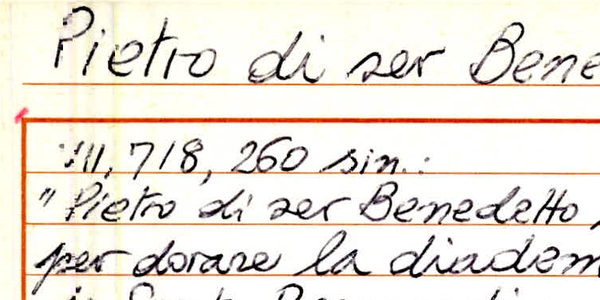 Pietro di ser Bene
VII, 718, 260 sin.:
"Pietro di ser Benedetto
per dorare la diadem